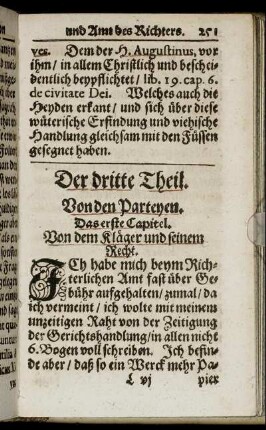 und Amt des Richters. 251
ves. Dem der H. Augustinus, vor
ihm / in allem Christlich und beschei-
dentlich beypflichtet / lib. 19. cap. 6.
de civitate Dei. Welches auch die
Heyden erkant / und sich über diese
wüterische Erfindung und viehische
Handlung gleichsam mit den Füssen
gesegnet haben.
Der dritte Theil.
Von den Parteyen.
Das erste Capitel.
Von dem Kläger und seinem
Recht.
ICh habe mich beym Rich-
terlichen Amt fast über Ge-
bühr aufgehalten / zumal / da
ich vermeint / ich wolte mit meinem
unzeitigen Raht von der Zeitigung
der Gerichtshandlung / in allen nicht
6. Bogen voll schreiben. Ich befin-
de aber / daß so ein Werck mehr Pa-
L vj pier